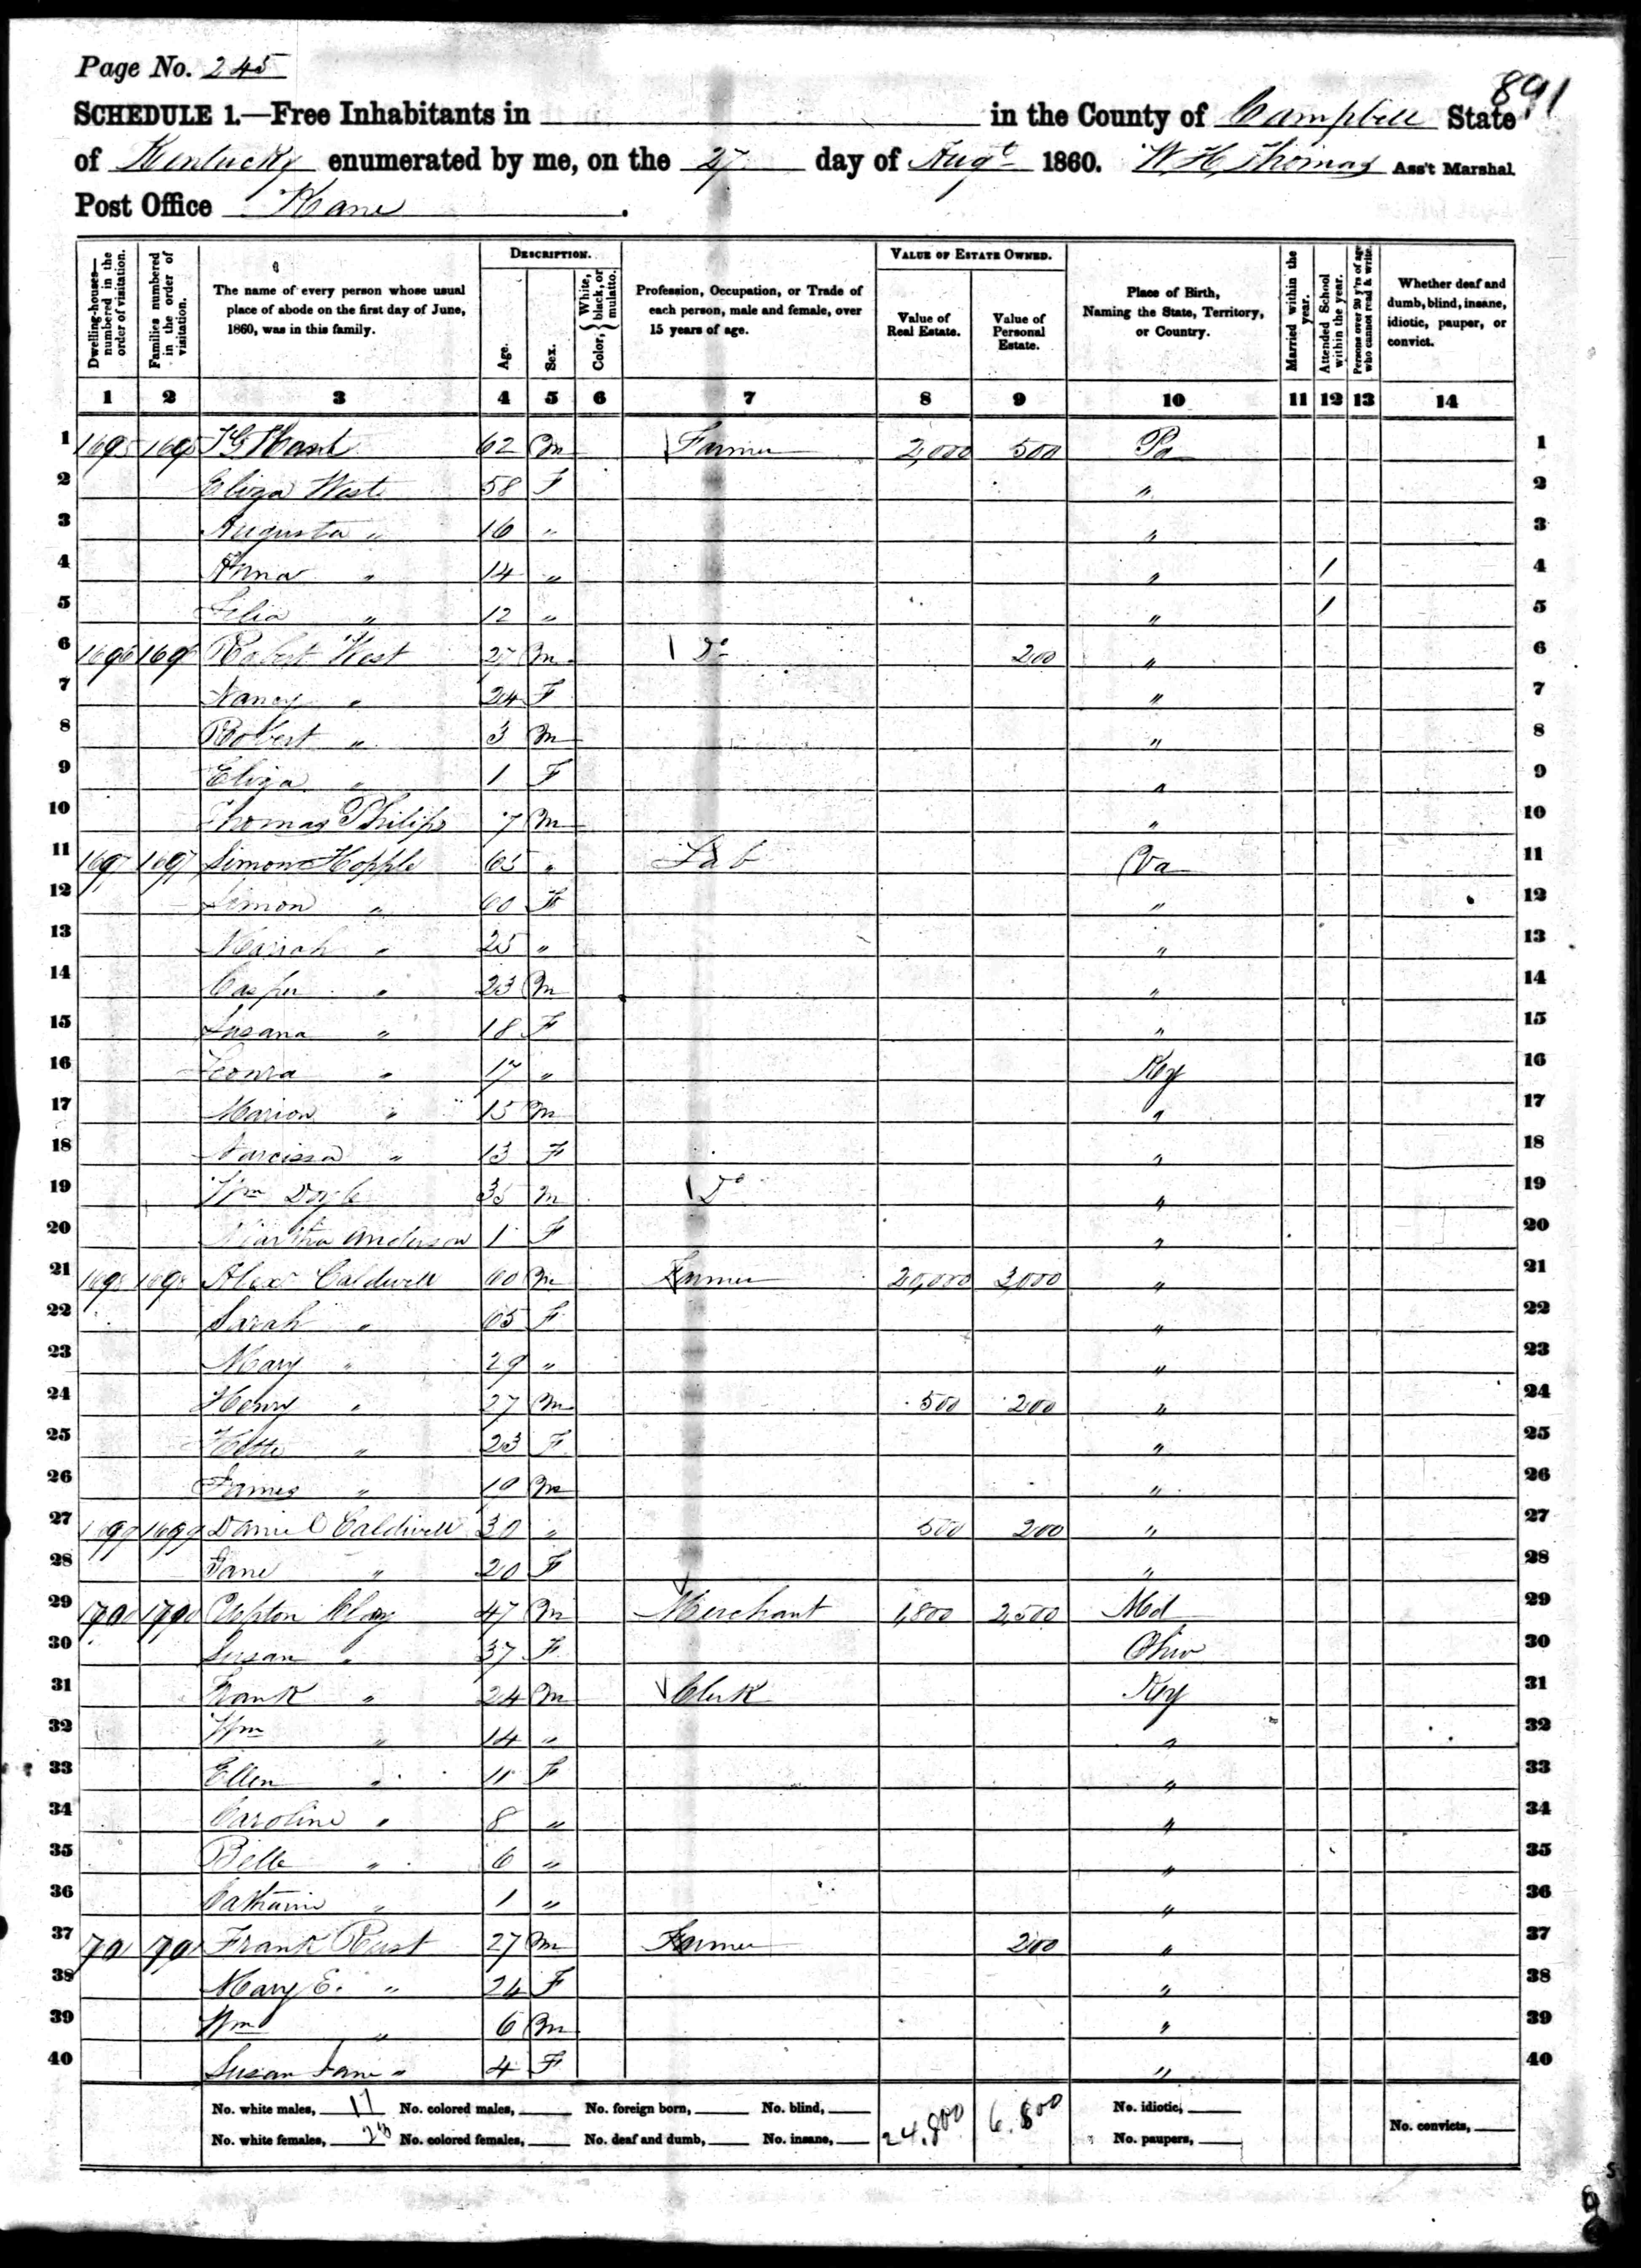 Page No. 245
891
SCHEDULE 1.—Free Inhabitants in in the County of Campbell State
of Kentucky enumerated by me, on the 27 day of Augt 1860. W H Thomas Ass't Marshal
Post Office Kane
Dwelling-houses—numbered in the order of visitation. Families numbered in the order of visitation. The name of every person whose usual place of abode on the first day of June, 1860, was in this family. DESCRIPTION. Age. Sex. Color, { White, black, or mulatto. Profession, Occupation, or Trade of each person, male and female, over 15 years of age. VALUE OF ESTATE OWNED. Value of Real Estate. Value of Personal Estate. Place of Birth, Naming the State, Territory, or Country. Married within the year. Attended School within the year. Persons over 20 y'rs of age who cannot read & write. Whether deaf and dumb, blind, insane, idiotic, pauper, or convict.
1 2 3 4 5 6 7 8 9 10 11 12 13 14
1 1695 1695 62 m Farmer 2,000 500 Pa 1
2 Eliza West 58 F " 2
3 Augusta " 16 " " 3
4 Anna " 14 " " / 4
5 " 12 " " / 5
6 1696 1696 Robert West 27 m Do 200 " 6
7 Nancy " 24 F " 7
8 Robert " 3 m " 8
9 Eliza " 1 F " 9
10 Thomas Philips 7 m " 10
11 1697 1697 Simon Hopple 65 " Lab Va 11
12 Simon " 60 F " 12
13 Mariah " 25 " " 13
14 Casper " 23 m " 14
15 Susana " 18 F " 15
16 " 17 " Ky 16
17 Marion " 15 m " 17
18 Narcissa " 13 F " 18
19 Wm Doyle 35 m Do " 19
20 Martha Anderson 1 F " 20
21 1698 1698 Alex Caldwell 60 m Farmer 20,000 3,000 " 21
22 Sarah " 65 F " 22
23 Mary " 29 " " 23
24 Henry " 27 m 500 200 " 24
25 " 23 F " 25
26 James " 10 m " 26
27 1699 1699 Daniel Caldwell 30 " 500 200 " 27
28 Jane " 20 F " 28
29 1700 1700 Clay 47 m Merchant 1,800 2,500 Md 29
30 Susan " 37 F Ohio 30
31 Frank " 24 m Clerk Ky 31
32 Wm " 14 " " 32
33 Ellen " 11 F " 33
34 Caroline " 8 " " 34
35 Belle " 6 " " 35
36 " 1 " " 36
37 701 701 Frank Rust 27 m Farmer 200 " 37
38 Mary E. " 24 F " 38
39 Wm " 6 m " 39
40 Susan Jane " 4 F " 40
No. white males, 17 No. colored males, No. foreign born, No. blind, 24,800 6,800 No. idiotic,
No. white females, 23 No. colored females, No. deaf and dumb, No. insane, No. paupers, No. convicts,